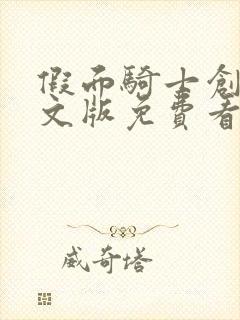 假面騎士創
文版免費看
威奇塔